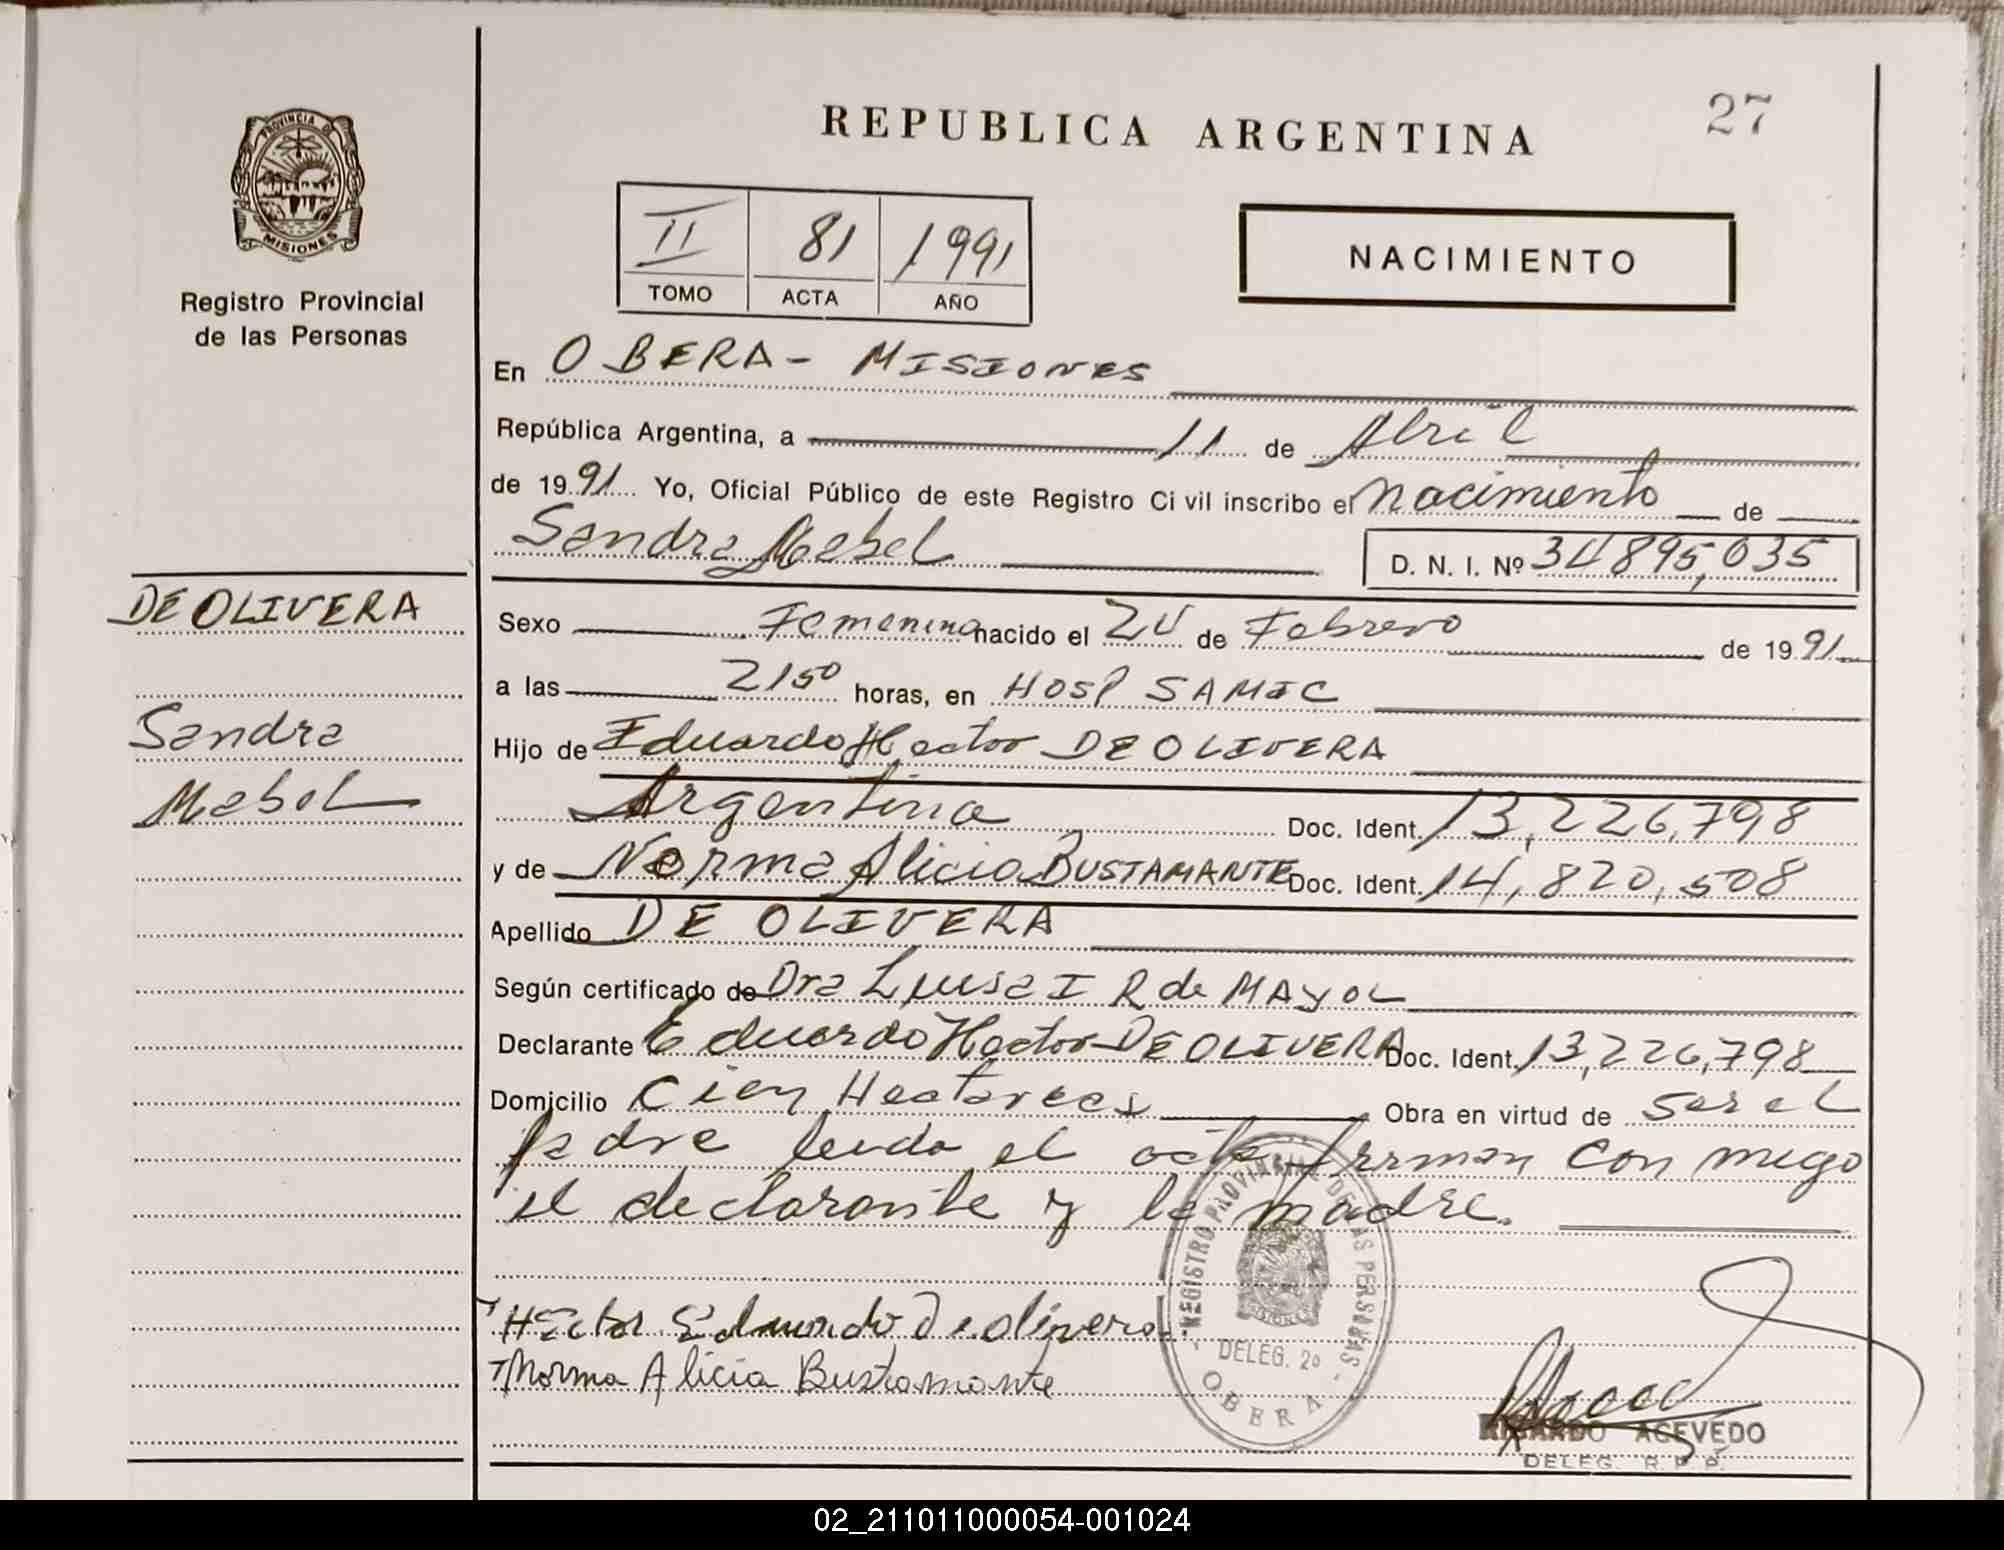 REPUBLICA ARGENTINA
27
PROVINCIA DE
MISIONES
Registro Provincial
de las Personas
II 81 1991
TOMO ACTA AÑO
NACIMIENTO
En OBERA - MISIONES
República Argentina, a 11 de Abril
de 1991 Yo, Oficial Público de este Registro Civil inscribo el Nacimiento de
Sandra Mabel D. N. I. Nº 34895,035
DE OLIVERA
Sandra
Mabel
Sexo Femenino nacido el 24 de Febrero de 1991
a las 2150 horas, en HOSP SAMIC
Hijo de Eduardo Hector DE OLIVERA
Argentina Doc. Ident. 13,226,798
y de Norma Alicia BUSTAMANTE Doc. Ident. 14,820,508
Apellido DE OLIVERA
Según certificado de Dra Luisa I R de MAYOL
Declarante Eduardo Hector DE OLIVERA Doc. Ident. 13,226,798
Domicilio Cien Hectareas Obra en virtud de ser el
padre leida el acta firman con migo
el declarante y la madre.
Hector Eduardo De olivera
Norma Alicia Bustamante
REGISTRO PROVINCIAL DE LAS PERSONAS
DELEG. 2º
OBERA
RICARDO ACEVEDO
DELEG. R. P. P.
02_211011000054-001024